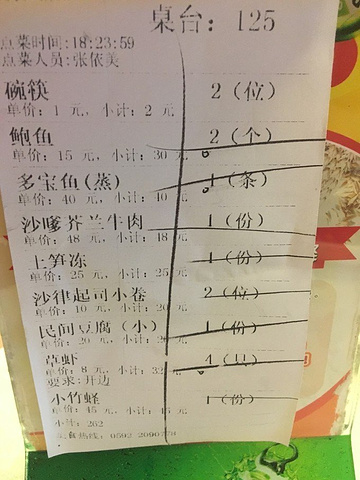 桌台：125
点菜时间:18:23:59
点菜人员:张依美
碗筷 2（位）
单价：1 元，小计：2 元
鲍鱼 2（个）
单价：15 元，小计：30 元
多宝鱼(蒸) 1（条）
单价：40 元，小计：40 元
沙嗲芥兰牛肉 1（份）
单价：48 元，小计：48 元
土笋冻 1（份）
单价：25 元，小计：25 元
沙律起司小卷 2（位）
单价：10 元，小计：20 元
民间豆腐（小） 1（份）
单价：20 元，小计：20 元
草虾 4（只）
单价：8 元，小计：32 元
要求：开边
小竹蛏 1（份）
单价：45 元，小计：45 元
小计：262